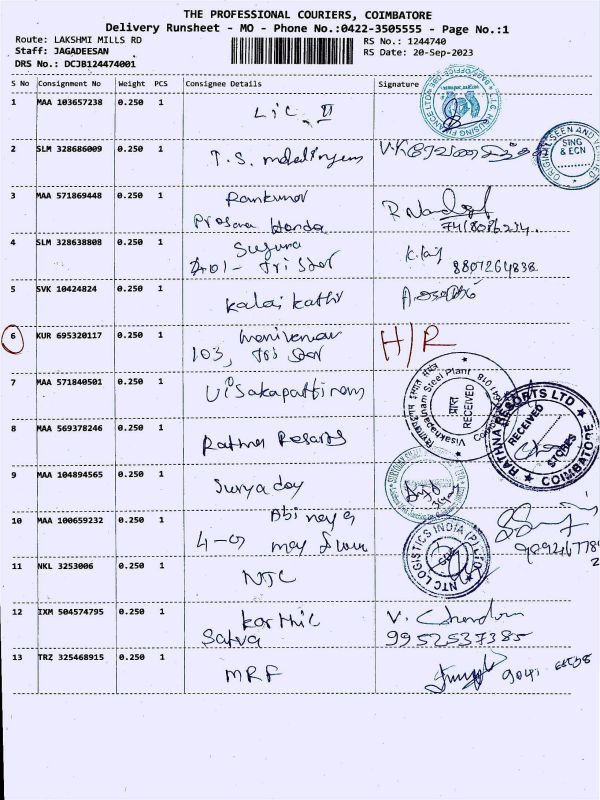 THE PROFESSIONAL COURIERS, COIMBATORE
Delivery Runsheet - MO - Phone No.:0422-3505555 - Page No.:1
Route: LAKSHMI MILLS RD
RS No.: 1244740
Staff: JAGADEESAN
RS Date: 20-Sep-2023
DRS No.: DCJB124474001
S No Consignment No Weight PCS Consignee Details Signature
1 MAA 103657238 0.250 1 LIC II
2 SLM 328686009 1 T.S.
ORIGINAL SEEN AND
SING & ECN
3 MAA 571869448 0.250 1 Ramkumar
Prosana Honda
4 SLM 328638808 0.250 1 Suguna
Tri Star
8807264838
5 SVK 10424824 0.250 1 Kalai Kathi
6 KUR 695320117 0.250 1 H/R
103, Tri Star
7 MAA 571840501 0.250 1 Visakapattinam
Visakhapatnam Steel Plant
प्राप्त
RECEIVED
8 MAA 569378246 0.250 1 Rathna Resorts
RATHNA RESORTS LTD
RECEIVED
STORES
COIMBATORE
9 MAA 104894565 0.250 1 Surya day
10 MAA 100659232 0.250 1 Abinaya
May flower
11 NKL 3253006 0.250 1 NTC
NTC LOGISTICS INDIA (P) LTD
12 IXM 504574795 0.250 1 Karthic V.
Satva 9952537385
13 TRZ 325468915 0.250 1 MRF